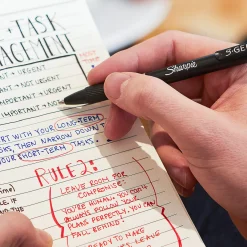 + TASK
AGEMENT
→ URGENT
NT → NOT URGENT
IMPORTANT → URGENT
IMPORTANT → NOT
Sharpie
S·GEL
RT WITH YOUR LONG-TERM
TASKS, THEN NARROW DOWN
YOUR SHORT-TERM TASKS.
RULE 2:
LEAVE ROOM FOR
COMPROMISE
YOU'RE HUMAN. YOU
ALWAYS FOLLOW YOUR
PLANS PERFECTLY. YOU CAN
FALL BEHIND!
READY TO MAKE